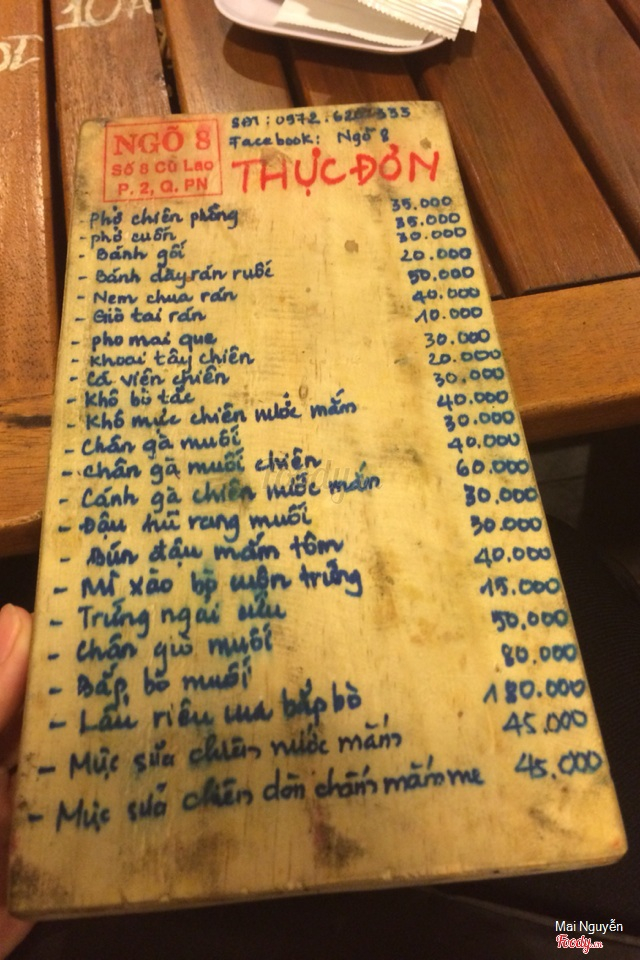 NGÕ 8
Số 8 Cù Lao
P. 2, Q. PN
SĐT :
Facebook: Ngõ 8
THỰC ĐƠN
- Phở chiên phồng 35.000
- phở cuốn 35.000
- Bánh gối 30.000
- Bánh dày rán ruốc 20.000
- Nem chua rán 50.000
- Giò tai rán 40.000
- pho mai que 10.000
- Khoai tây chiên 30.000
- Cá viên chiên 20.000
- Khô bò tắc 30.000
- Khô mực chiên nước mắm 40.000
- Chân gà muối 30.000
- chân gà muối chiên 40.000
- Cánh gà chiên nước mắm 60.000
- Đậu hũ rang muối 30.000
- Bún đậu mắm tôm 30.000
- Mì xào bò cuộn trứng 40.000
- Trứng ngải cứu 15.000
- Chân giò muối 50.000
- Bắp bò muối 80.000
- Lẩu riêu cua bắp bò 180.000
- Mực sữa chiên nước mắm 45.000
- Mực sữa chiên dòn chấm mắm me 45.000
Mai Nguyễn
Foody.vn